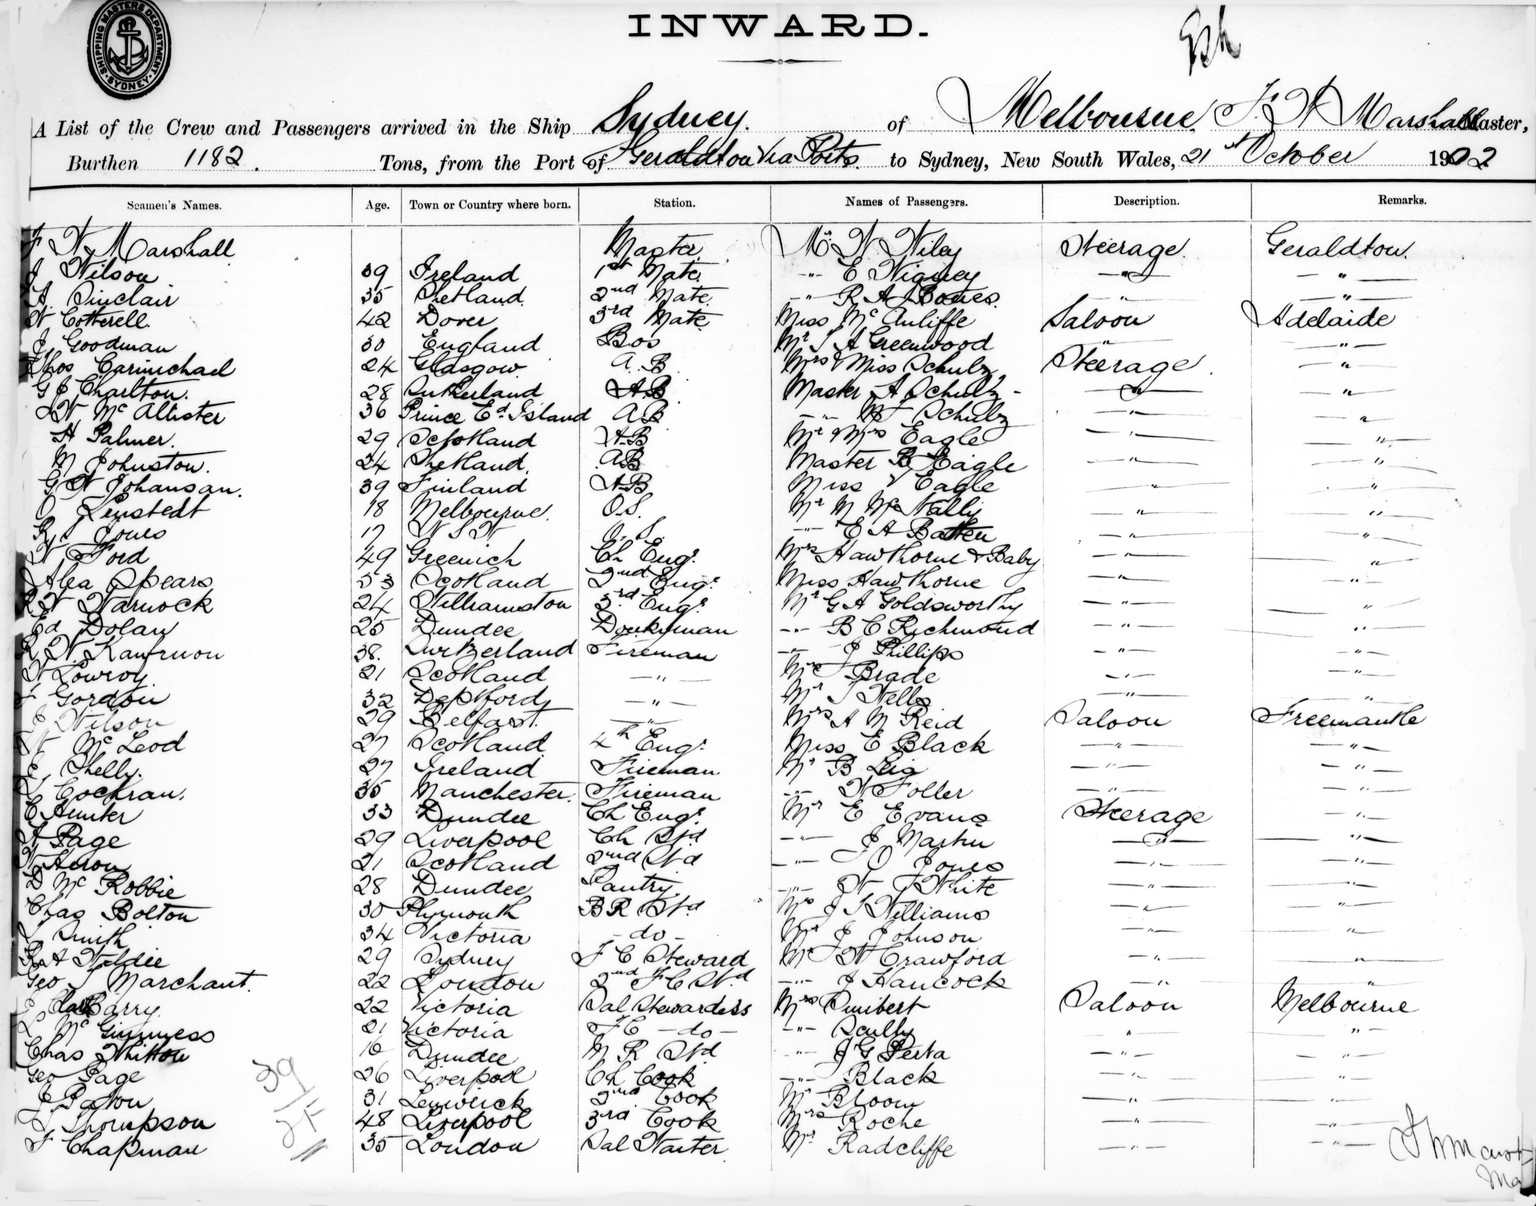 SHIPPING MASTERS DEPARTMENT SYDNEY
INWARD.
A List of the Crew and Passengers arrived in the Ship Sydney. of Melbourne, F. W Marshall Master,
Burthen 1182. Tons, from the Port of Geraldton Via Ports to Sydney, New South Wales, 21st October 1902
Seamen's Names. Age. Town or Country where born. Station. Names of Passengers. Description. Remarks.
F W Marshall Master Mr W Wiley Steerage Geraldton.
J Wilson 39 Ireland 1st Mate -"- E Nigney -"- -"-
A. Sinclair 35 Shetland 2nd Mate. -"- R A J Bones. " "
W Cotterell 42 Dover 3rd Mate Miss McAuliffe Saloon Adelaide
J, Goodman 30 England Bos Mr S A Greenwood " -"-
Thos Carmichael 24 Glasgow A.B Mrs & Miss Schulz Steerage. "
G J Charlton. 28 Sutherland AB Master A Schulz - " "
W McAllister 36 Prince Ed Island AB -"- Schulz " "
H Palmer. 29 Scotland AB Mr & Mrs Eagle " "
M Johnston. 24 Shetland. AB Master R Eagle " "
G W Johansan. 39 Finland AB Miss V Eagle " "
O Lenstedt 18 Melbourne. O.S. Mr M McNally " "
R, Jones 17 N S W O.S. -"- E A Batten " "
W Ford 49 Greenwich Ch Engr. Mrs Hawthorne & Baby " "
Alex Spears 53 Scotland 2nd Engr. Miss Hawthorne " "
R W Warnock 24 Williamston 3rd Engr. Mr G A Goldsworthy " "
Ed Dolan 25 Dundee Donkeyman -"- B C Richmond " "
R W 38. Switzerland Fireman -"- J Phillips " "
W Lowroy 21 Scotland -"- Brade " "
F Gordon 32 Deptford -"- Mr S Wells " "
E Wilson 29 Belfast. -"- Mrs A M Reid Saloon Freemantle
W McLeod 27 Scotland 4th Engr. Miss E Black -"- -"-
E, Shelly. 27 Ireland Fireman Mr B Lig -"- -"-
Cochran. 35 Manchester. Fireman -"- W Foller " -"-
C Hunter 33 Dundee Ch Engr. Mr E Evans Steerage -"-
A Page 29 Liverpool Ch Std -"- J Martin " "
W Heron 21 Scotland 2nd Std -"- O Jones " "
D McRobbie 28 Dundee Pantry -"- W J White " "
Chas Bolton 30 Plymouth B R Std Mr J S Williams " "
Smith 34 Victoria -do- Mr J Johnson " "
R A Weldie 29 Sydney F C Steward Mr J W Crawford " "
Geo J Marchant. 22 London 2nd F C Std -"- J Hancock " "
Barry. 22 Victoria Sal Stewardess Mrs Dunibert Saloon Melbourne
L McGinness 21 Victoria F C -do- -"- Scully " "
Chas Whitton 16 Dundee M R Std -"- J G Perta -"- -"-
Geo Page 26 Liverpool Ch Cook -"- Black -"- -"-
J Paton 31 Lerwick 2nd Cook Mr Bloom -"- -"-
J Thompson 48 Liverpool 3rd Cook Mrs Roche -"- -"-
F Chapman 35 London Sal Waiter Mr Radcliffe -"- -"-
39